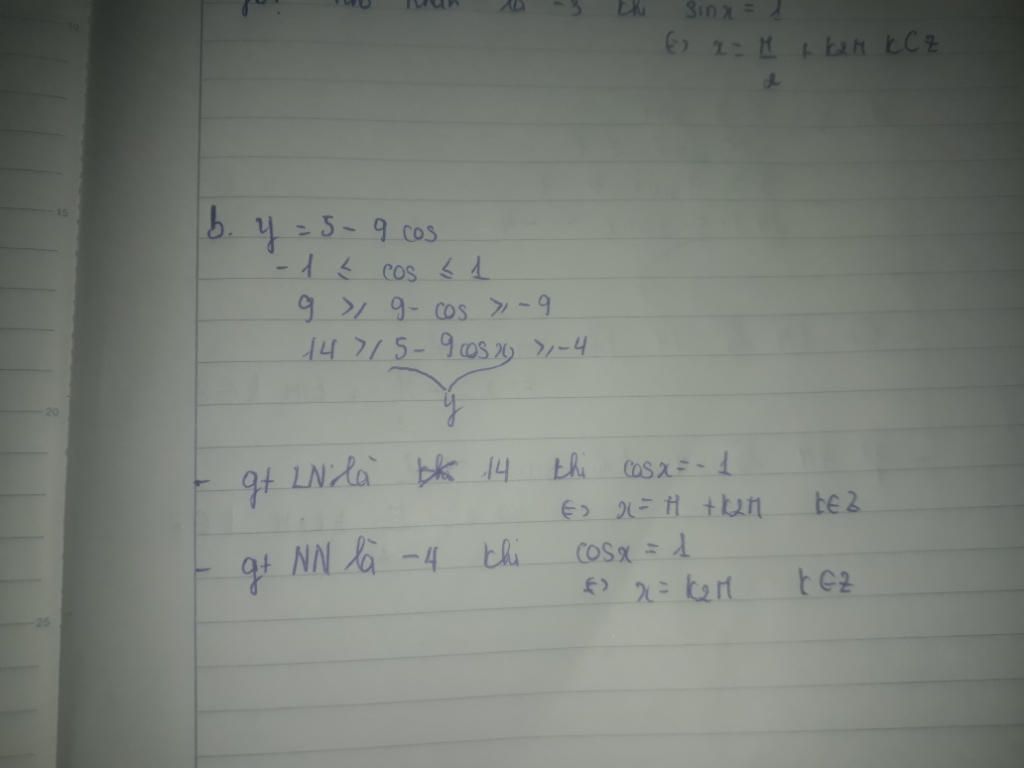 là -3 khi sinx = 1
⇔ x = π/2 + k2π k∈Z
b. y = 5 - 9 cos
-1 ≤ cos ≤ 1
9 ≥ 9- cos ≥ -9
14 ≥ 5 - 9cosx ≥ -4
y
- gt LN là 14 khi cosx = -1
⇔ x = π + k2π k∈Z
- gt NN là -4 khi cosx = 1
⇔ x = k2π k∈Z
15
20
25